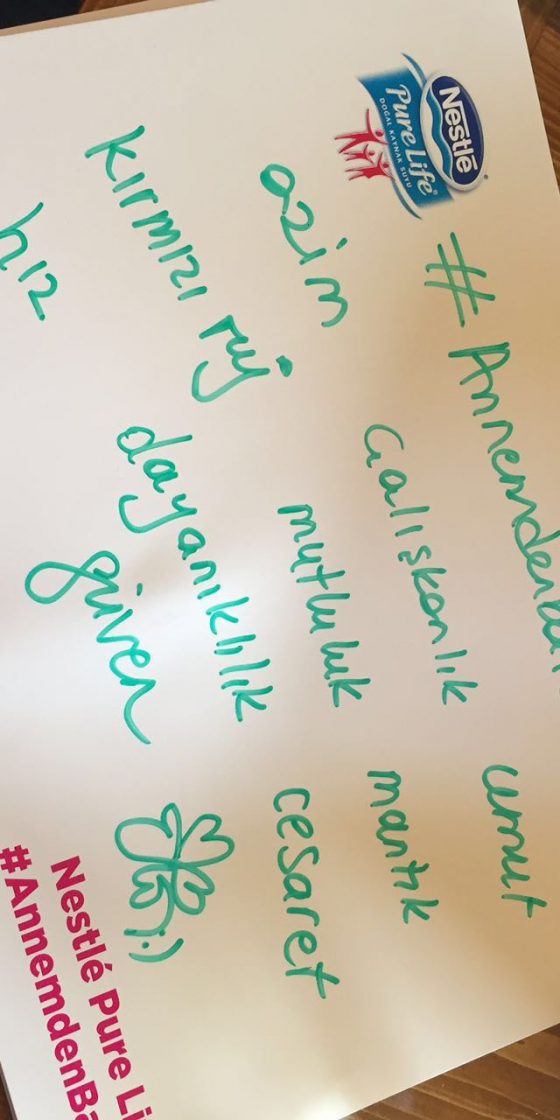 Nestlé
Pure Life
DOĞAL KAYNAK SUYU
#Annemdenba
çalışkanlık umut
azim mutluluk mantık
kırmızı ruj cesaret
dayanıklılık
hız güven :)
Nestlé Pure Li
#AnnemdenBa